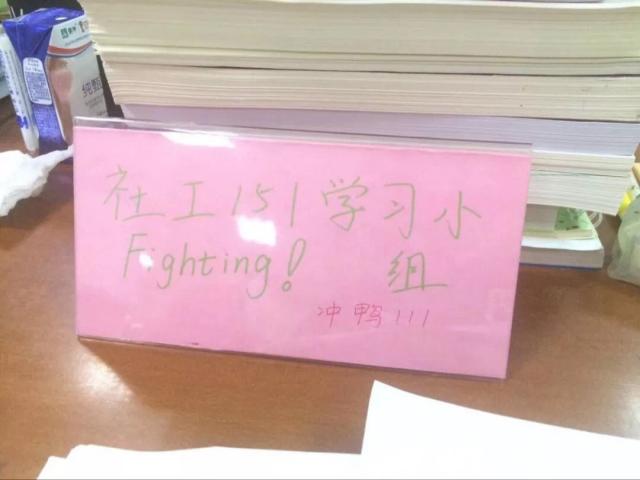 社工151学习小
Fighting! 组
冲鸭!!!
纯